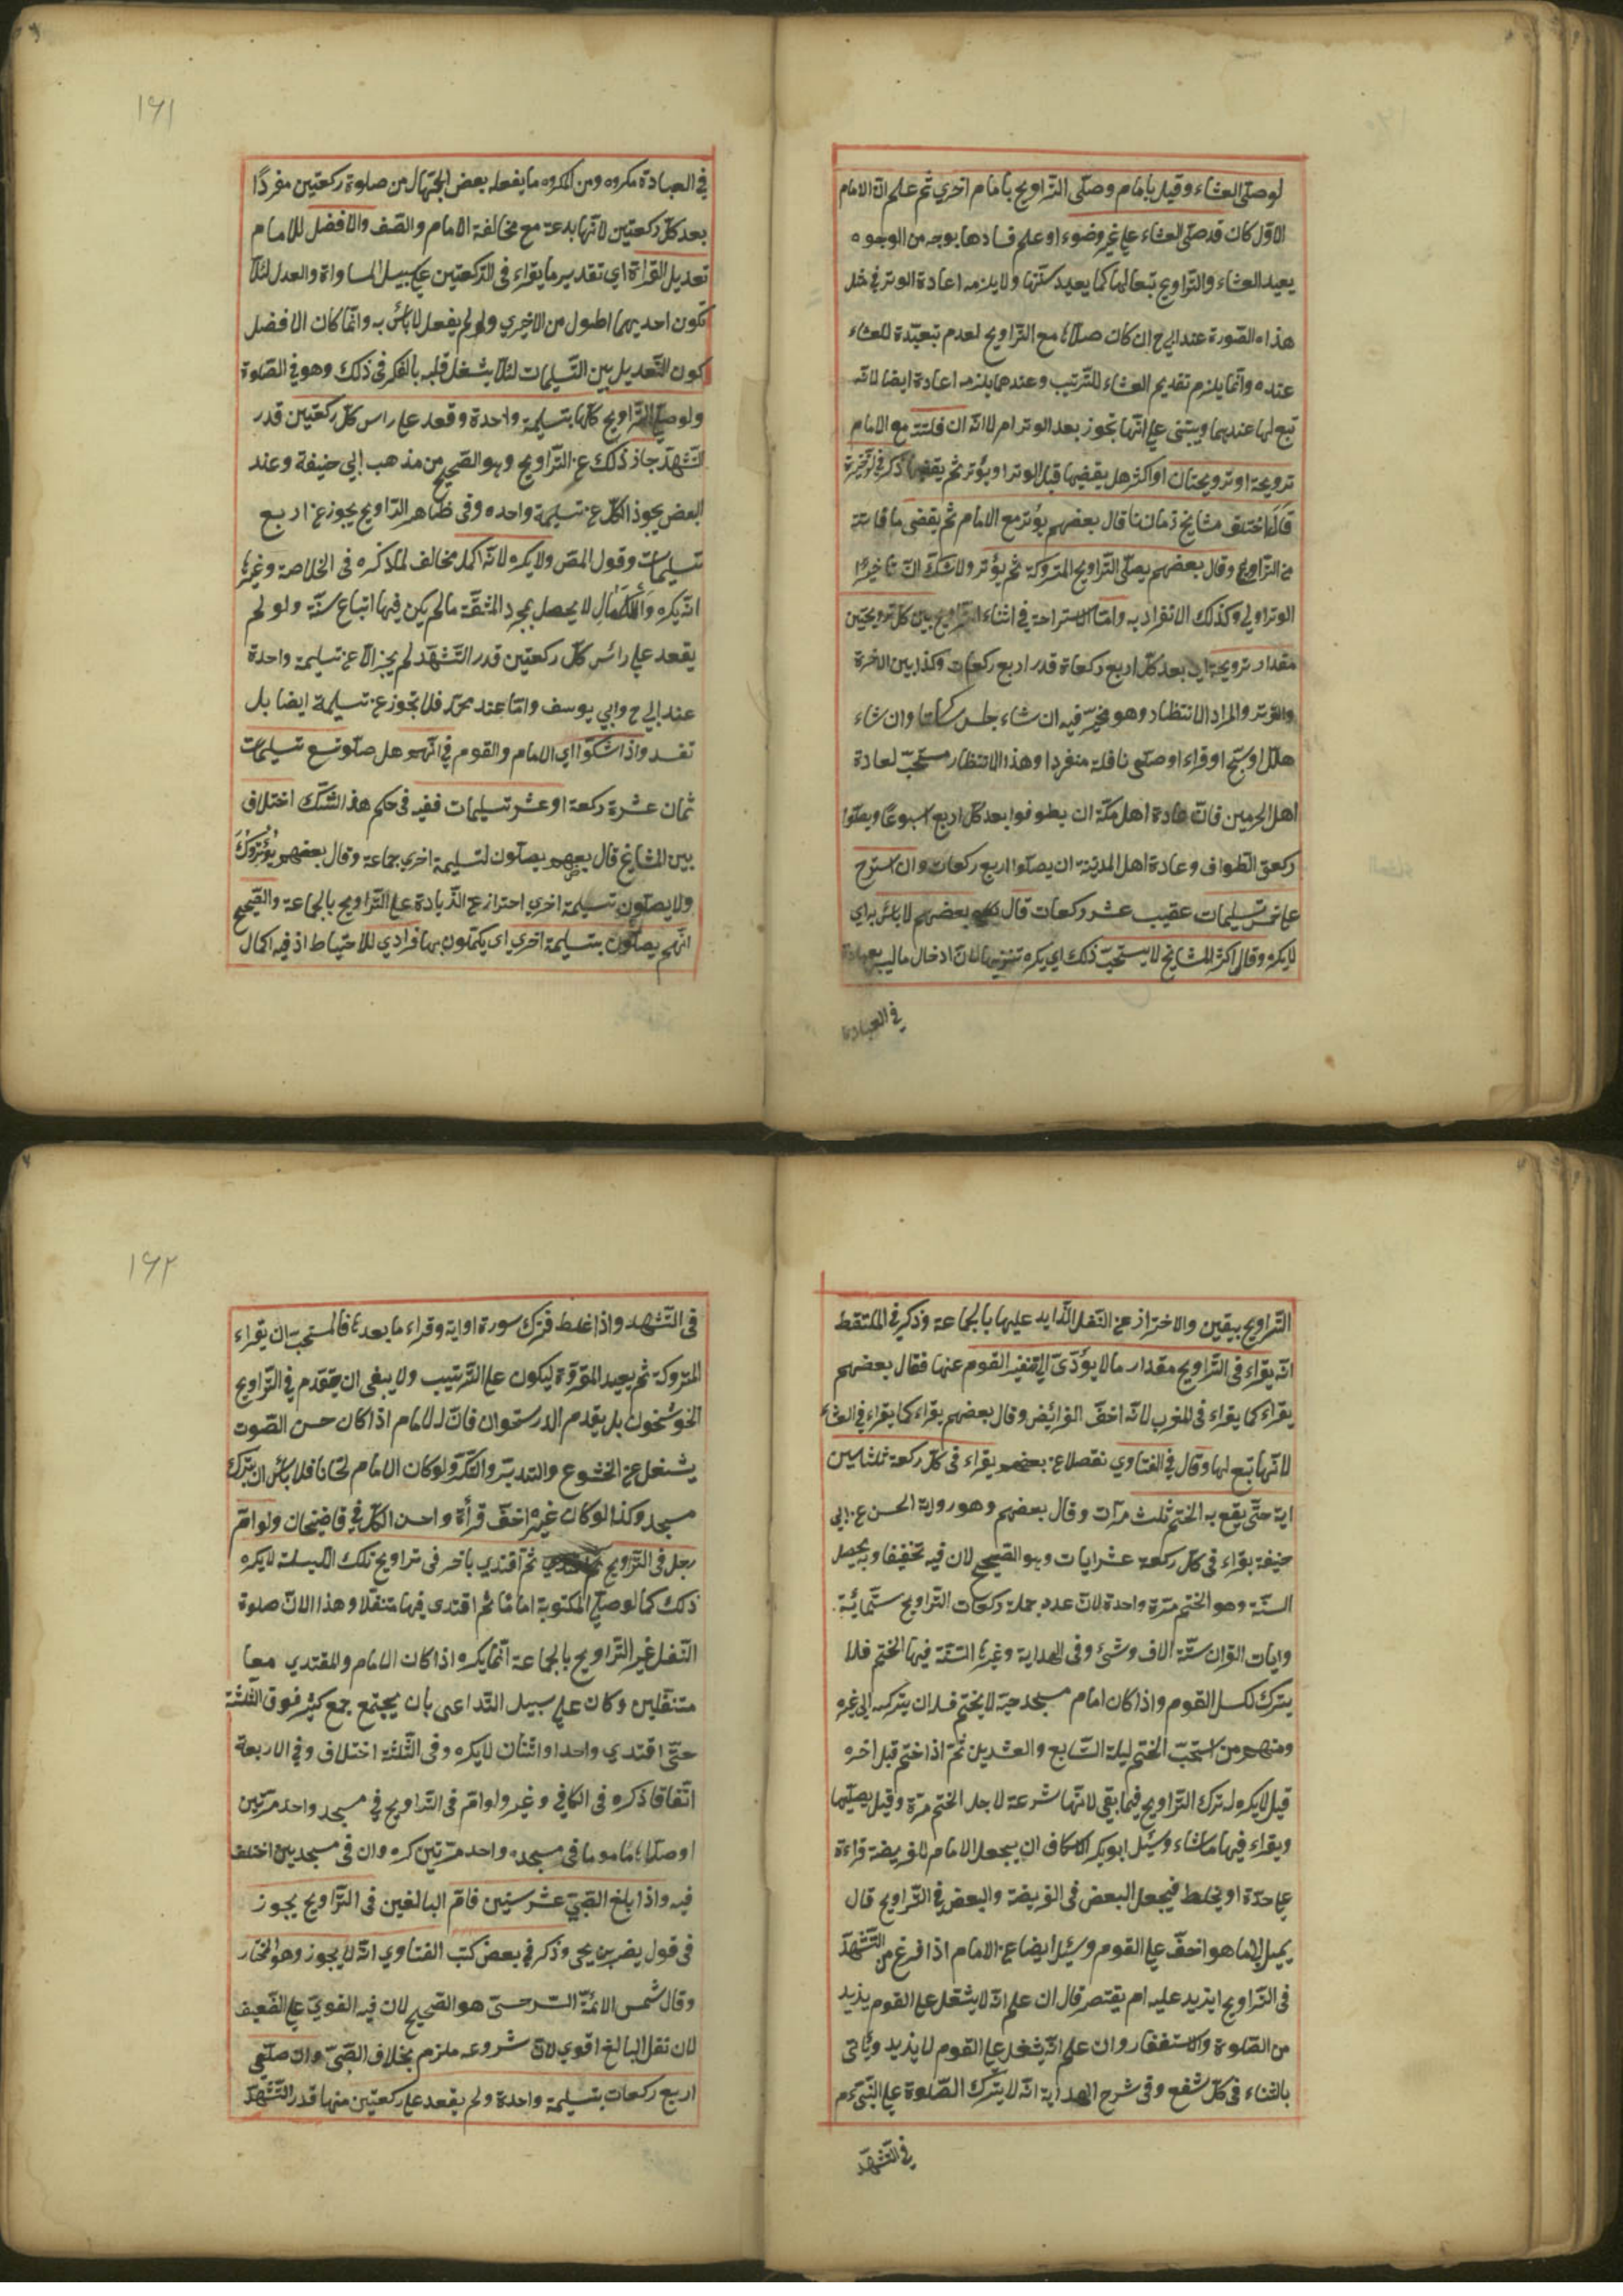 لو صلّى العشاء وقيل بامام وصلّى التراويح بامام اخري ثم علم انّ الامام
الاوّل كان قد صلّى العشاء علي غير وضوء او علم فسادها بوجه من الوجوه
يعيد العشاء والتراويح تبعا لها كما يعيد سنّتها ولا يلزمه اعادة الوتر في مثل
هذه الصّورة عند ابي ح ان كان صلّاه مع التراويح لعدم تبعيّته للعشاء
عنده وانّما يلزم تقديم العشاء للترتيب وعندهما يلزمه اعادة ايضا لانّه
تبع لها عندهما ويبتنى علي انّها تجوز بعد الوتر ام لا انّه ان فاتته مع الامام
ترويحة او ترويحتان او اكثر هل يقضيها قبل الوتر او يؤتر ثم يقضيها ذكر في الذخيرة
قال اختلف مشايخ زماننا قال بعضهم يؤتر مع الامام ثم يقضي ما فاتته
من التراويح وقال بعضهم يصلّى التراويح المتروكة ثم يؤتر ولا شكّ انّ تاخير
الوتر اولي وكذلك الانفراد به وامّا الاستراحة في اثناء التراويح بين كلّ ترويحتين
مقدار ترويحة اي بعد كلّ اربع ركعاة قدر اربع ركعات وكذا بين الاخرة
والوتر والمراد الانتظار وهو مخيّر فيه ان شاء جلس ساكتا وان شاء
هلّل او سبّح او قراء او صلّى نافلة منفردا وهذا الانتظار مستحبّ لعادة
اهل الحرمين فانّ عادة اهل مكّة ان يطوفوا بعد كلّ اربع اسبوعا ويصلّوا
ركعتي الطّواف وعادة اهل المدينة ان يصلّوا اربع ركعات وان استرح
علي خمس تسليمات عقيب عشر ركعات قال بعضهم لا باس به اي
لا يكره وقال اكثر المشايخ لا يستحبّ ذلك اي يكره تنزيها لانّ ادخال ما ليس بعبادة
في العبادة
١٦١
في العبادة مكروه ومن المكروه ما يفعله بعض الجهّال من صلوة ركعتين مفردًا
بعد كلّ ركعتين لانّها بدعة مع مخالفة الامام والصّف والافضل للامام
تعديل القراة اي تقدير ما يقراء في الركعتين علي سبيل المساواة والعدل لئلّا
تكون احديهما اطول من الاخري ولو لم يفعل لا باس به وانّما كان الافضل
كون التّعديل بين التّسليمات لئلّا يشغل قلبه بالفكر في ذلك وهو في الصّلوة
ولو صلّى التّراويح كلّها بتسليمة واحدة وقعد علي راس كلّ ركعتين قدر
التّشهّد جاز ذلك عن التّراويح وهو الصّحيح من مذهب ابي حنيفة وعند
البعض يجوز الكلّ عن تسليمة واحده وفي ظاهر التراويح يجوز عن اربع
تسليمات وقول المص ولا يكره لانّه اكمل مخالف لما ذكره في الخلاصة وغيرها
انّه يكره وَالْكَمَال لا يحصل بمجرد المشقّة ما لم يكن فيها اتباع سنّة ولو لم
يقعد علي رائس كلّ ركعتين قدر التّشهّد لم يجز الّا عن تسليمة واحدة
عند ابي ح وابي يوسف وامّا عند محمّد فلا تجوز عن تسليمة ايضا بل
تفسد واذا شكّوا اي الامام والقوم في انّهم هل صلّو تسع تسليمات
ثمان عشرة ركعة او عشر تسليمات ففيه في حكم هذا الشّكّ اختلاف
بين المشايخ قال بعضهم يصلّون لتسليمة اخري جماعة وقال بعضهم يُؤتِرُونَ
ولا يصلّون تسليمة اخري احتراز عن الزّيادة علي التّراويح بالجماعة والصّحيح
انّهم يصلّون بتسليمة اخري اي يكمّلون بها فرادي للاحتياط اذ فيه اكمال
التّراويح بيقين والاحتراز عن النّفل الزّايد عليها بالجماعة وذكر في الملتقط
انّه يقراء في التّراويح مقدار ما لا يؤدّى الي تنفير القوم عنها فقال بعضهم
يقراء كما يقراء في المغرب لانّه اخفّ الفرائض وقال بعضهم يقراء كما يقراء في العشاء
لانّها تبع لها وقال في الفتاوي نقصلا عن بعضهم يقراء في كلّ ركعة ثلثا بين
اية حتّى يقع به الختم ثلث مرّات وقال بعضهم وهو رواية الحسن عن ابي
حنيفة يقراء في كلّ ركعة عشر ايات وهو الصّحيح لان فيه تخفيفا وبه يحصل
السنّة وهو الختم مرّة واحدة لانّ عدد جملة ركعات التّراويح ستّمائة
وايات القران ستّة الاف وشئ وفي الهداية وغيرها السّنّة فيها الختم فلا
يترك لكسل القوم واذا كان امام مسجد حيّه لا يختم فله ان يتركه الي غيره
ومنهم من استحبّ الختم ليلة السّابع والعشرين ثمّ اذا ختم قبل اخره
قيل لا يكره له ترك التّراويح فيما بقي لانّها شرعة لاجل الختم مرّة وقيل يصلّيها
ويقراء فيها ما شاء وسئل ابو بكر الاسكاف ان يجعل الامام للفريضة قراءة
علي حدّة او يخلط فيجعل البعض في الفريضة والبعض في التّراويح قال
يميل الي ما هو اخفّ علي القوم وسئل ايضا عن الامام اذا فرغ من التّشهّد
في التّراويح ايزيد عليه ام يقتصر قال ان علم انّه لا يثقل علي القوم يزيد
من الصّلوة والاستغفار وان علم انّه يثقل علي القوم لا يزيد وياتى
بالثناء في كلّ شفع وفي شرح الهداية انّه لا يترك الصّلوة علي النّبيّ عم
في التّشهّد
١٦٢
في التّشهد واذا غلط فترك سورة او اية وقراء ما بعدها فالمستحبّ ان يقراء
المتروكة ثم يعيد المقروّة ليكون علي التّرتيب ولا ينبغي ان يتقدّم في التّراويح
الخوشخون بل يقدم الدرستخوان فانّ الامام اذا كان حسن الصّوت
يشتغل عن الخشوع والتدبّر والتّفكّر ولو كان الامام لحّانا فلا باس ان يترك
مسجده وكذا لو كان غيره اخفّ قرأة واحسن الكلّ في قاضيخان ولو امّ
رجل في التّراويح ثمّ اقتدي باخر في تراويح تلك اللّيلة لا يكره
ذلك كما لو صلّى المكتوبة امامًا ثم اقتدى فيها متنفّلا وهذا لانّ صلوة
النّفل غير التّراويح بالجماعة انّما يكره اذا كان الامام والمقتدي معا
متنفّلين وكان علي سبيل التّداعى بان يجتمع جمع كثير فوق الثّلثة
حتّى اقتدي واحدا واثنان لا يكره وفي الثّلثة اختلاف وفي الاربعة
اتّفاقا ذكره في الكافي وغيره ولو امّ في التّراويح في مسجد واحد مرّتين
او صلّاها مأموما في مسجده واحد مرّتين كره وان في مسجدين اختلف
فيه واذا بلغ الصّبيّ عشر سنين فامّ البالغين في التّراويح يجوز
في قول نصير بن يحى وذكر في بعض كتب الفتاوي انّه لا يجوز وهو المختار
وقال شمس الائمّة السّرخسىّ هو الصّحيح لان فيه القويّ علي الضّعيف
لان نفل البالغ اقوي لانّ شروعه ملزم بخلاف الصّبيّ وان صلّى
اربع ركعات بتسليمة واحدة ولم يقعد علي ركعتين منها قدر التّشهّد